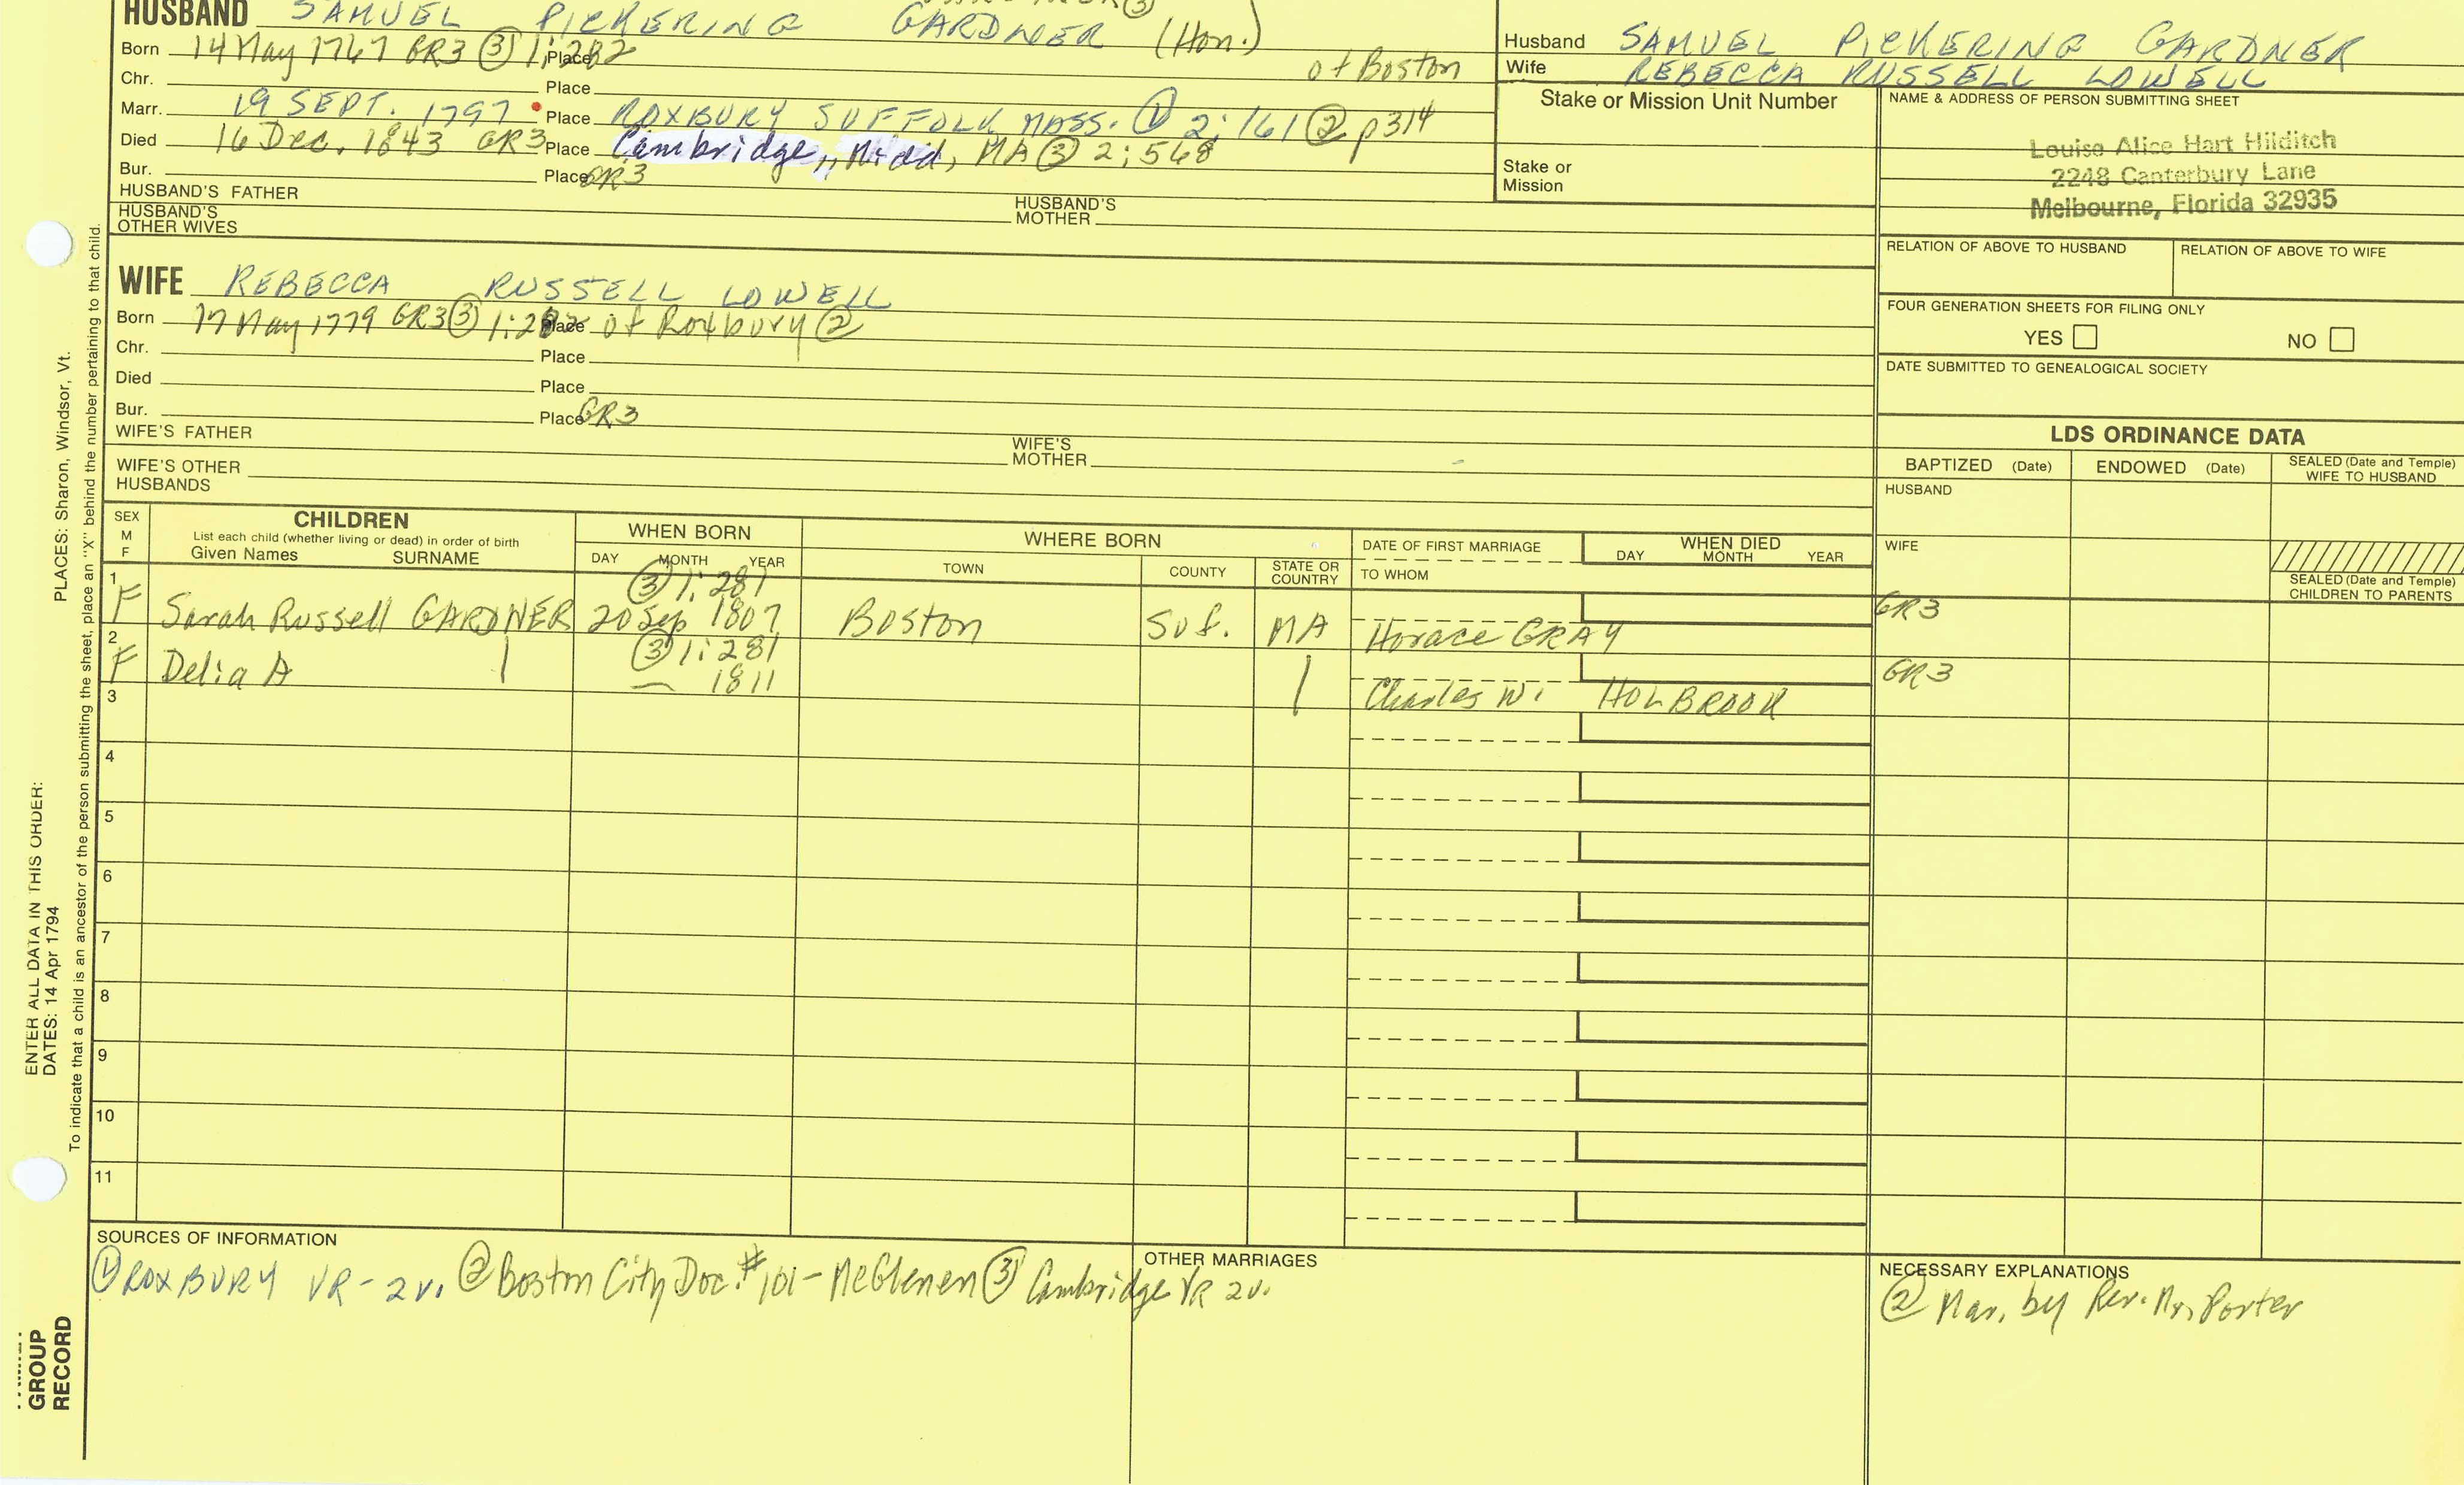 HUSBAND SAMUEL PICKERING GARDNER (Hon.)
Born 14 May 1767 GR3 ③ 1:282 Place of Boston
Chr. Place
Marr. 19 SEPT. 1797 Place ROXBURY SUFFOLK MASS. ① 2:161 ② p314
Died 16 Dec. 1843 GR3 Place Cambridge,, Midd, MA ③ 2:568
Bur. Place GR3
HUSBAND'S FATHER
HUSBAND'S MOTHER
HUSBAND'S OTHER WIVES
Husband SAMUEL PICKERING GARDNER
Wife REBECCA RUSSELL LOWELL
Stake or Mission Unit Number
Stake or
Mission
NAME & ADDRESS OF PERSON SUBMITTING SHEET
Louise Alice Hart Hilditch
2248 Canterbury Lane
Melbourne, Florida 32935
RELATION OF ABOVE TO HUSBAND
RELATION OF ABOVE TO WIFE
FOUR GENERATION SHEETS FOR FILING ONLY
YES NO
DATE SUBMITTED TO GENEALOGICAL SOCIETY
WIFE REBECCA RUSSELL LOWELL
Born 17 May 1779 GR3 ③ 1:282 Place of Roxbury ②
Chr. Place
Died Place
Bur. Place GR3
WIFE'S FATHER
WIFE'S MOTHER
WIFE'S OTHER HUSBANDS
LDS ORDINANCE DATA
BAPTIZED (Date) ENDOWED (Date) SEALED (Date and Temple) WIFE TO HUSBAND
HUSBAND
WIFE
SEALED (Date and Temple)
CHILDREN TO PARENTS
SEX
M
F
CHILDREN
List each child (whether living or dead) in order of birth
Given Names SURNAME
WHEN BORN
DAY MONTH YEAR
WHERE BORN
TOWN COUNTY STATE OR COUNTRY
DATE OF FIRST MARRIAGE
TO WHOM
WHEN DIED
DAY MONTH YEAR
③ 1:281
1 F Sarah Russell GARDNER 20 Sep 1807 Boston Suf. MA Horace GRAY GR3
③ 1:281
2 F Delia A 1811 Charles W. HOLBROOK GR3
3
4
5
6
7
8
9
10
11
SOURCES OF INFORMATION
① ROXBURY VR - 2v. ② Boston City Doc. #101 - McGlenen ③ Cambridge VR 2v.
OTHER MARRIAGES
NECESSARY EXPLANATIONS
② Mar. by Rev. Mr. Porter
PLACES: Sharon, Windsor, Vt.
ENTER ALL DATA IN THIS ORDER:
DATES: 14 Apr 1794
To indicate that a child is an ancestor of the person submitting the sheet, place an "X" behind the number pertaining to that child.
GROUP
RECORD